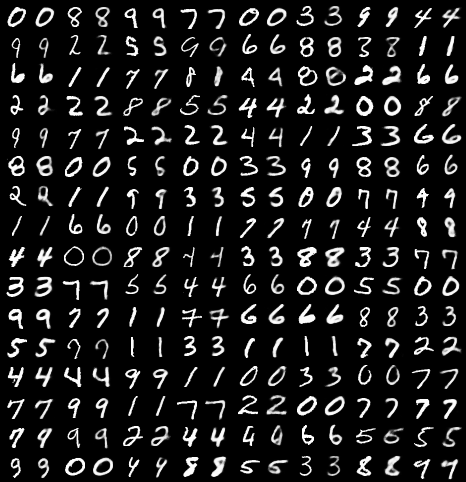 0 0 8 8 9 9 7 7 0 0 3 3 9 9 4 4
9 9 2 2 5 5 9 9 6 6 8 8 3 8 1 1
6 6 1 1 7 7 8 8 4 4 8 8 2 2 6 6
2 2 2 2 8 8 5 5 4 4 2 2 0 0 8 8
9 9 7 7 2 2 2 2 4 4 1 1 3 3 6 6
8 8 0 0 5 5 0 0 3 3 9 9 8 8 6 6
2 2 1 1 9 9 3 3 5 5 0 0 7 7 9 9
1 1 6 6 0 0 1 1 7 7 7 7 4 4 8 8
4 4 0 0 8 8 4 4 3 3 8 8 3 3 7 7
3 3 7 7 5 5 4 4 6 6 0 0 5 5 0 0
9 9 7 7 1 1 7 7 6 6 6 6 8 8 3 3
5 5 7 7 1 1 3 3 1 1 1 1 7 7 2 2
4 4 4 4 9 9 1 1 0 0 3 3 0 0 7 7
7 7 9 9 1 1 7 7 2 2 0 0 7 7 7 7
7 9 9 9 2 2 4 4 4 4 6 6 5 5 5 5
9 9 0 0 4 4 8 8 5 5 3 3 8 8 9 9